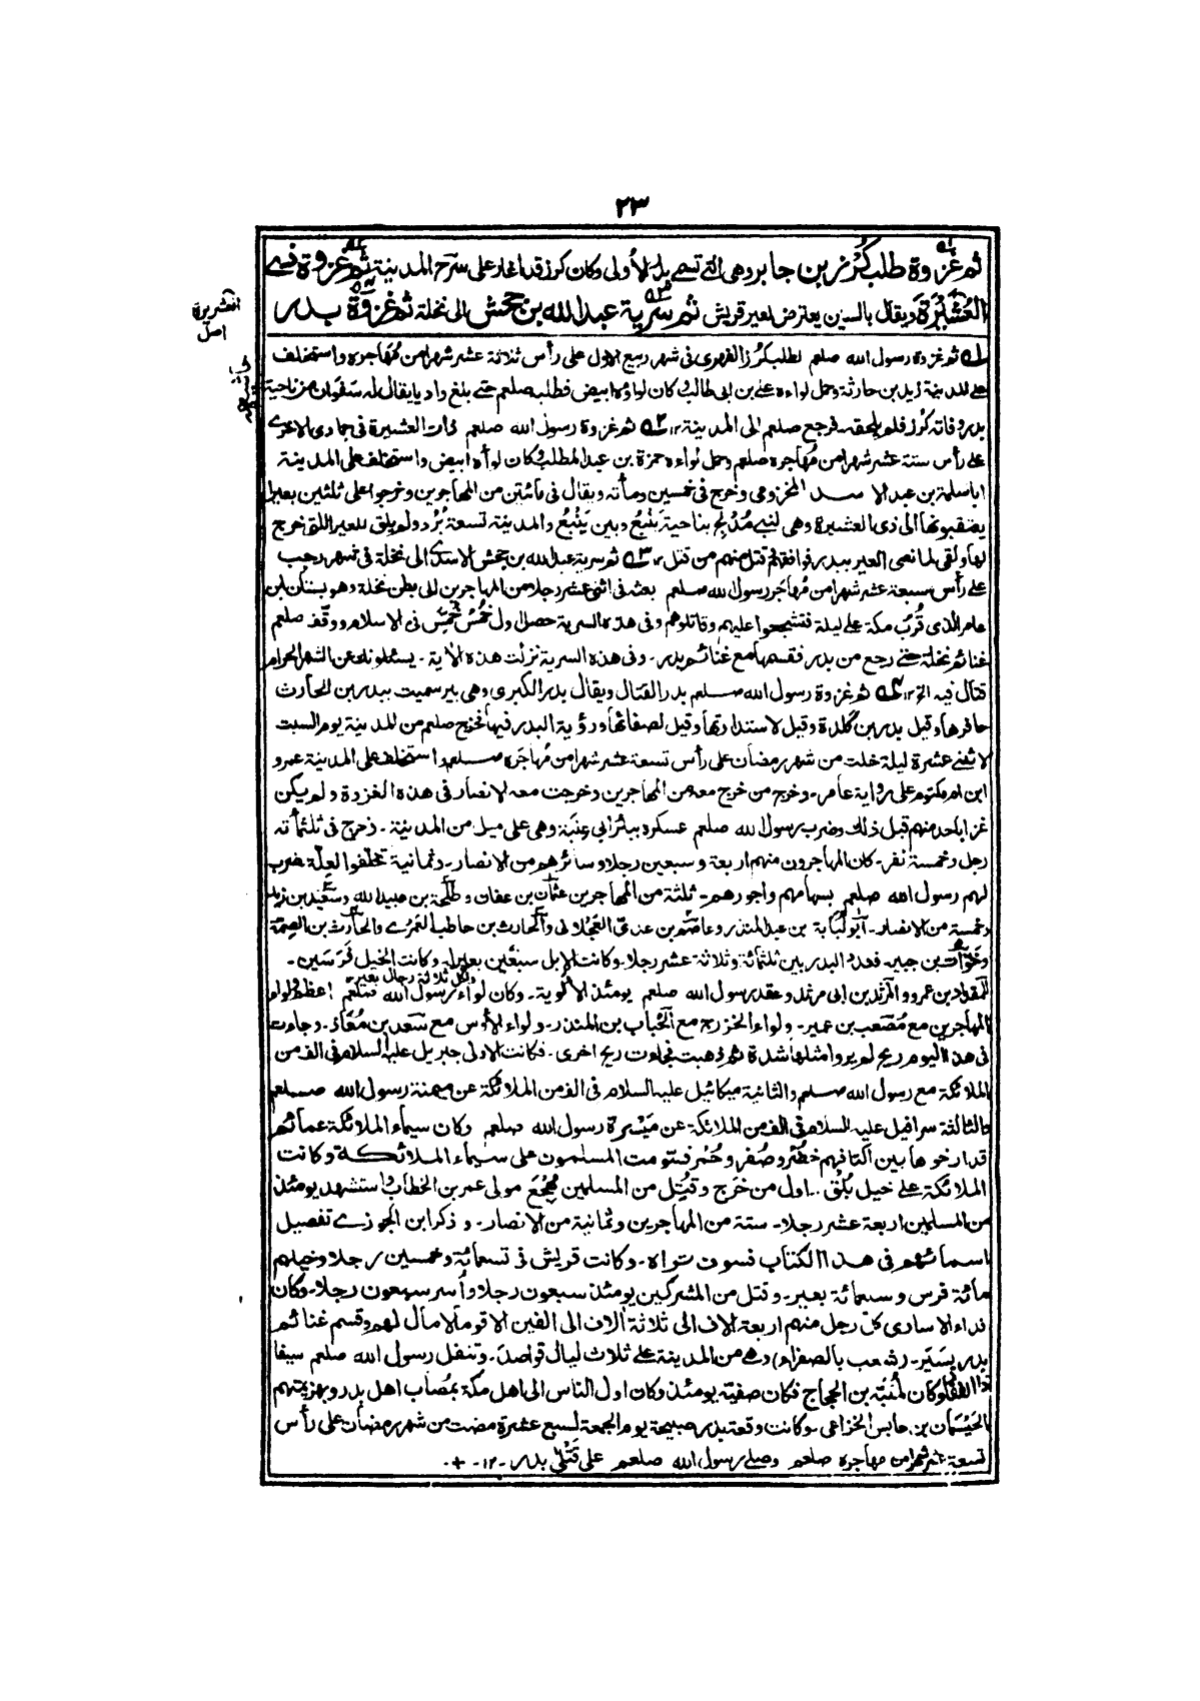 ٢٣
ثم غزوة طلب كرز بن جابر وهى التى تسمى بدر الأولى وكان كرز قد اغار على سرح المدينة ثم غزوة ذى
العشيرة ويقال بالسين يعترض لعير قريش ثم سرية عبد الله بن جحش الى نخلة ثم غزوة بدر
العشيرة
اصل
ثم غزوة رسول الله صلعم لطلب كرز الفهرى فى شهر ربيع الاول على رأس ثلاثة عشر شهرا من مهاجره واستخلف
على المدينة زيد بن حارثة وحمل لواءه على بن ابى طالب وكان لواؤه ابيض فطلبه صلعم حتى بلغ واديا يقال له سفوان من ناحية
بدر وفاته كرز فلم يلحقه فرجع صلعم الى المدينة ١٢ ثم غزوة رسول الله صلعم ذات العشيرة فى جمادى الاخرى
على رأس ستة عشر شهرا من مهاجره صلعم وحمل لواءه حمزة بن عبد المطلب وكان لواه ابيض واستخلف على المدينة
اباسلمة بن عبد الاسد المخزومى وخرج فى خمسين ومأته ويقال فى مائتين من المهاجرين وخرجوا على ثلثين بعيرا
يعتقبونها الى ذى العشيرة وهى لبنى مدلج بناحية ينبع وبين ينبع والمدينة تسعة برد ولم يلق للعير اللتى خرج
لها ولقى لما نعى العير ببدر فوافقهم قتل منهم من قتل ١٢ ثم سرية عبد الله بن جحش الاسدى الى نخلة فى شهر رجب
على رأس سبعة عشر شهرا من مهاجر رسول الله صلعم بعثه فى اثنى عشر رجلا من المهاجرين الى بطن نخلة وهو بستان ابن
عامر الذى قرب مكة على ليلة فتشجعوا عليهم وقاتلوهم وفى هذه السرية حصل اول خمس خمس فى الاسلام ووقف صلعم
غنائم نخلة حتى رجع من بدر فقسمها مع غنائم بدر - وفى هذه السرية نزلت هذه الآية - يسئلونك عن الشهر الحرام
قتال فيه الخ ١٢ ثم غزوة رسول الله صلعم بدر القتال ويقال بدر الكبرى وهى بير سميت ببدر بن الحارث
حافرها وقيل بدر بن كلدة وقيل لاستدارتها وقيل لصفائها ورؤية البدر فيها فخرج صلعم من المدينة يوم السبت
لاثنى عشرة ليلة خلت من شهر رمضان على رأس تسعة عشر شهرا من مهاجره صلعم واستخلف على المدينة عمرو
ابن ام مكتوم على رواية عامر - وخرج من خرج معه من المهاجرين وخرجت معه الانصار فى هذه الغزوة ولم يكن
غزا باحد منهم قبل ذلك وضرب رسول الله صلعم عسكره ببئر ابى عنبة وهى على ميل من المدينة - فخرج فى ثلثمأته
رجل وخمسة نفر - كان المهاجرون منهم اربعة وسبعين رجلا وسائرهم من الانصار - وثمانية تخلفوا لعلة ضرب
لهم رسول الله صلعم بسهامهم واجورهم - ثلثة من المهاجرين عثمان بن عفان وطلحة بن عبيد الله وسعيد بن زيد
وخمسة من الانصار - أبو لبابة بن عبد المنذر وعاصم بن عدى العجلانى والحارث بن حاطب العمرى والحارث بن الصمة
وخوات بن جبير - فعدد البدريين ثلثمائة وثلاثة عشر رجلا - وكانت الابل سبعين بعيرا - وكانت الخيل فرسين -
ولكل ثلاثة رجال بعير
للمقداد بن عمرو والمرثد بن ابى مرثد وعقد رسول الله صلعم يومئذ الألوية - وكان لواء رسول الله صلعم اعظم لواء
المهاجرين مع مصعب بن عمير - ولواء الخزرج مع الحباب بن المنذر - ولواء الأوس مع سعد بن معاذ - وجاءت
فى هذا اليوم ريح لم يروا مثلها شدة ثم ذهبت فجاءت ريح اخرى - فكانت الاولى جبريل عليه السلام فى الف من
الملائكة مع رسول الله صلعم والثانية ميكائيل عليه السلام فى الف من الملائكة عن ميمنة رسول الله صلعم
والثالثة سرافيل عليه السلام فى الف من الملائكة - عن ميسرة رسول الله صلعم وكان سيماء الملائكة عمائم
قد ارخوها بين اكتافهم خضر وصفر وحمر فستومت المسلمون على سيماء الملائكة وكانت
الملائكة على خيل بلق - اول من خرج وقتل من المسلمين مهجع مولى عمر بن الخطاب واستشهد يومئذ
من المسلمين اربعة عشر رجلا - ستة من المهاجرين وثمانية من الانصار - وذكر ابن الجوزى تفصيل
اسمائهم فى هذا الكتاب فسوف تراه - وكانت قريش فى تسعمائة وخمسين رجلا وخيلهم
مائة فرس وسبعمائة بعير - وقتل من المشركين يومئذ سبعون رجلا وأسر سبعون رجلا - وكان
فداء الاسارى كل رجل منهم اربعة الاف الى ثلاثة آلاف الى الفين الا قوما لا مال لهم وقسم غنائم
بدر بسير - (شعب بالصفراء) وهى من المدينة على ثلاث ليال قواصد - وتنفل رسول الله صلعم سيفا
ذا الفقار وكان لمنبه بن الحجاج فكان صفيته يومئذ وكان اول الناس الى اهل مكة بمصاب اهل بدر وبهزيمتهم
الحيسمان بن حابس الخزاعى - وكانت وقعة بدر صبيحة يوم الجمعة لسبع عشرة مضت من شهر رمضان على رأس
تسعة عشر شهرا من مهاجره صلعم وصلى رسول الله صلعم على قتلى بدر - ١٢ -